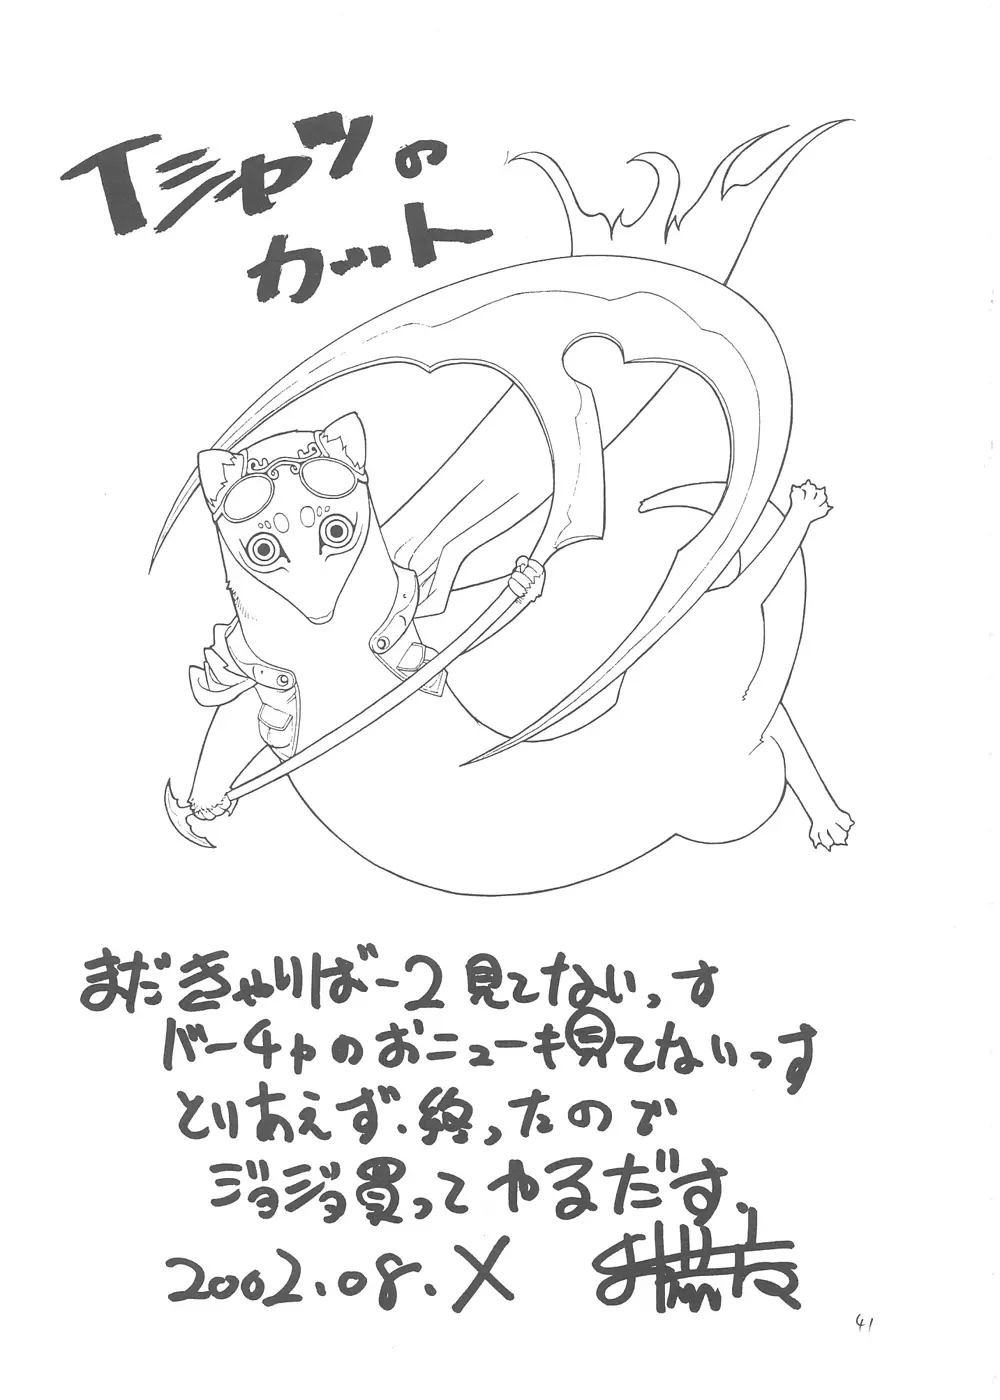 Tシャツの
カット
まだきゃりばー2見てないっす
バーチャのおニューも見てないっす
とりあえず、終ったので
ジョジョ買ってやるだす.
2002.08.X
41